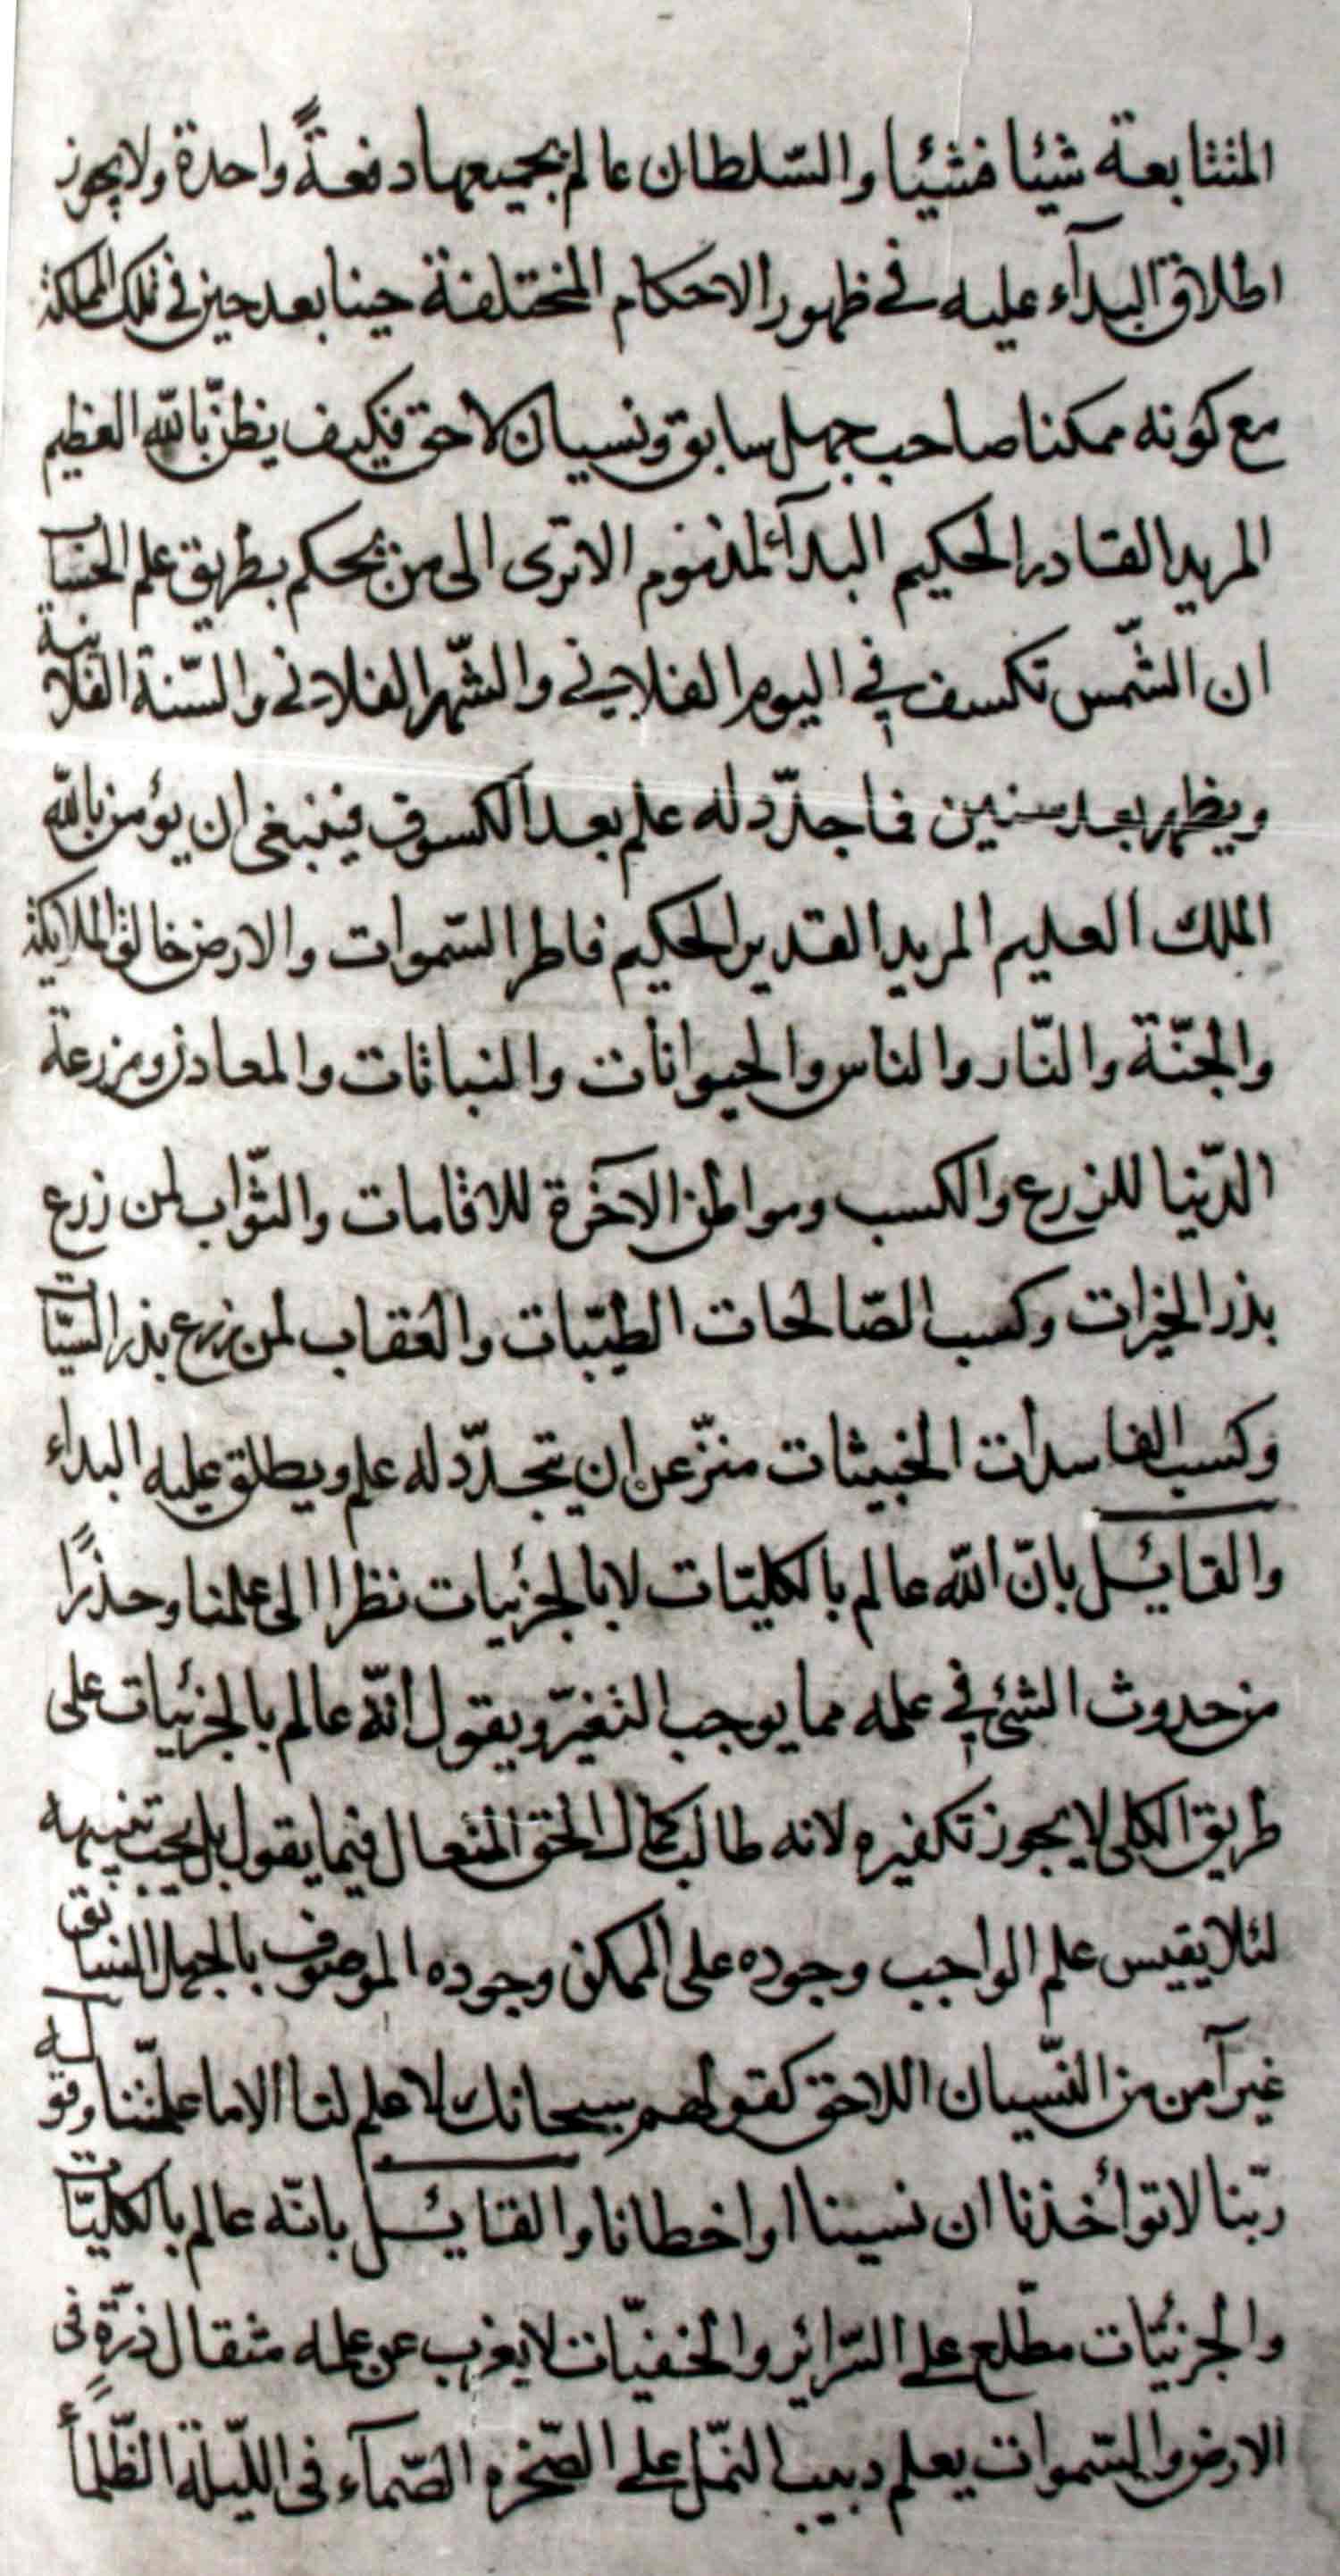 المتتابعة شيئا فشيئا والسّلطان عالم بجميعها دفعةً واحدة ولا يجوز
اطلاق البدآء عليه في ظهور الاحكام المختلفة حينا بعد حين في تلك المملكة
مع كونه ممكنا صاحب جهل سابق ونسيان لاحق فكيف يظنّ بالله العظيم
المريد القادر الحكيم البدآء المذموم الا ترى الى من يحكم بطريق علم الحساب
ان الشّمس تكسف في اليوم الفلاني والشّهر الفلاني والسّنة الفلانية
ويظهر بعد سنين فما جدّد له علم بعد الكسوف فينبغي ان يؤمن بالله
الملك العليم المريد القدير الحكيم فاطر السّموات والارض خالق الملايكة
والجنّة والنّار والناس والحيوانات والنباتات والمعادن ومزرعة
الدّنيا للزرع والكسب ومواطن الآخرة للاقامات والثّواب لمن زرع
بذر الخيرات وكسب الصّالحات الطيّبات والعقاب لمن زرع بذر السيّئات
وكسب الفاسدات الخبيثات منزّه عن ان يتجدّد له علم ويطلق عليه البداء
والقائل بانّ الله عالم بالكليّات لا بالجزئيات نظرا الى علمنا وحذرًا
من حدوث الشئ في علمه مما يوجب التغيّر ويقول انّه عالم بالجزئيات على
طريق الكلى لا يجوز تكفيره لانه طالب كمال الحق المتعال فيما يقول بل يجب تنبيهه
لئلا يقيس علم الواجب وجوده على الممكن وجوده الموصوف بالجهل السابق
غير آمن من النّسيان اللاحق كقولهم سبحانك لا علم لنا الا ما علّمتنا وقوله
ربّنا لا تؤاخذنا ان نسينا او اخطانا والقائل بانّه عالم بالكليّات
والجزئيّات مطّلع على السّرائر والخفيّات لا يغرب عن علمه مثقال ذرّةٍ فى
الارض والسّموات يعلم دبيب النّمل على الصّخرة الصّمآء فى اللّيلة الظّلمآء